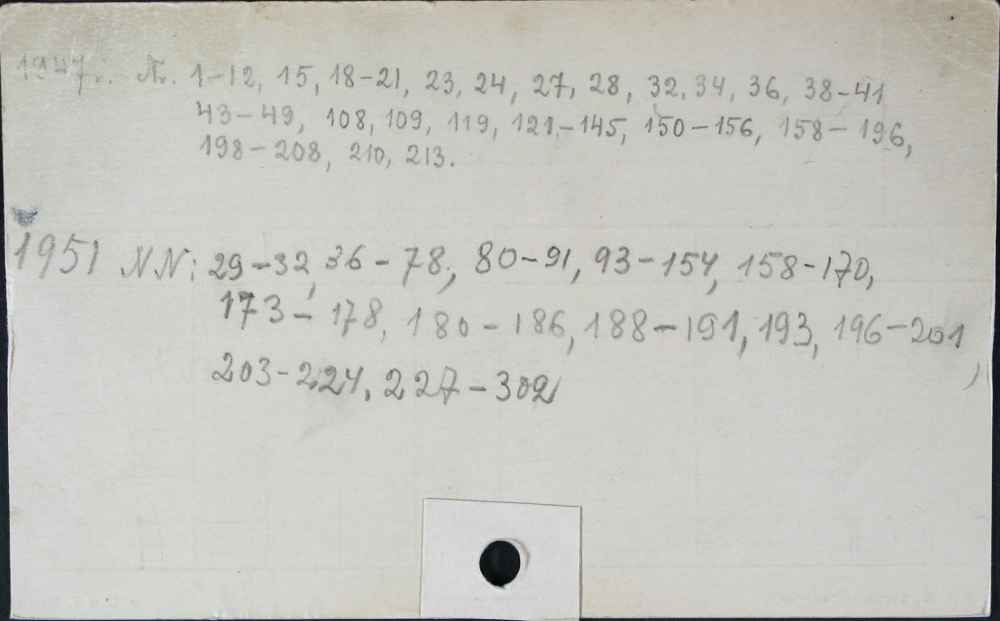 1947. Nr. 1-12, 15, 18-21, 23, 24, 27, 28, 32, 34, 36, 38-41
43-49, 108, 109, 119, 121,-145, 150-156, 158-196,
198-208, 210, 213.
1951 NN: 29-32, 36-78, 80-91, 93-154, 158-170,
173-178, 180-186, 188-191, 193, 196-201,
203-224, 227-302